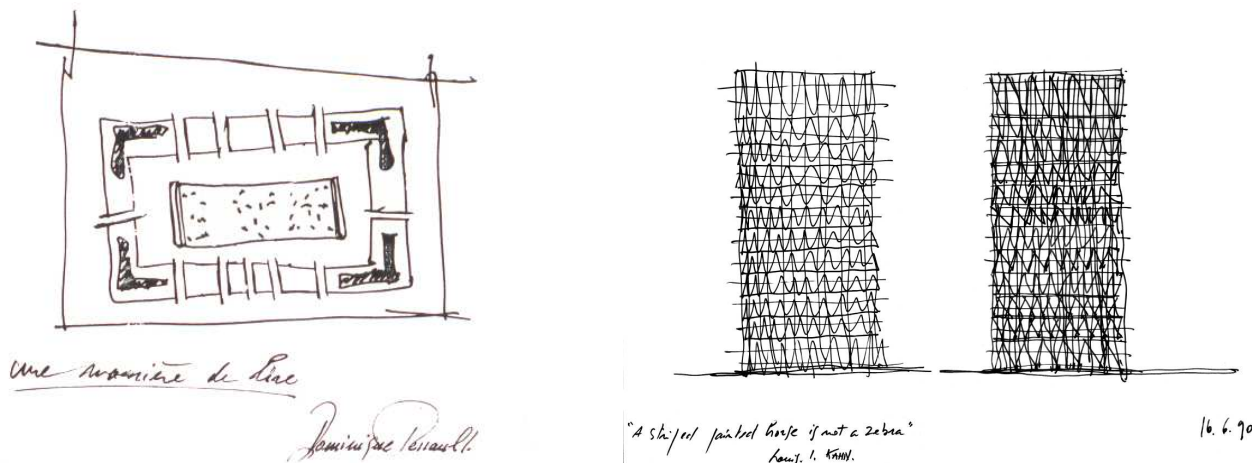 une manière de lire
Dominique Perrault.
"A striped painted horse is not a zebra"
Louis. I. KAHN.
16. 6. 90